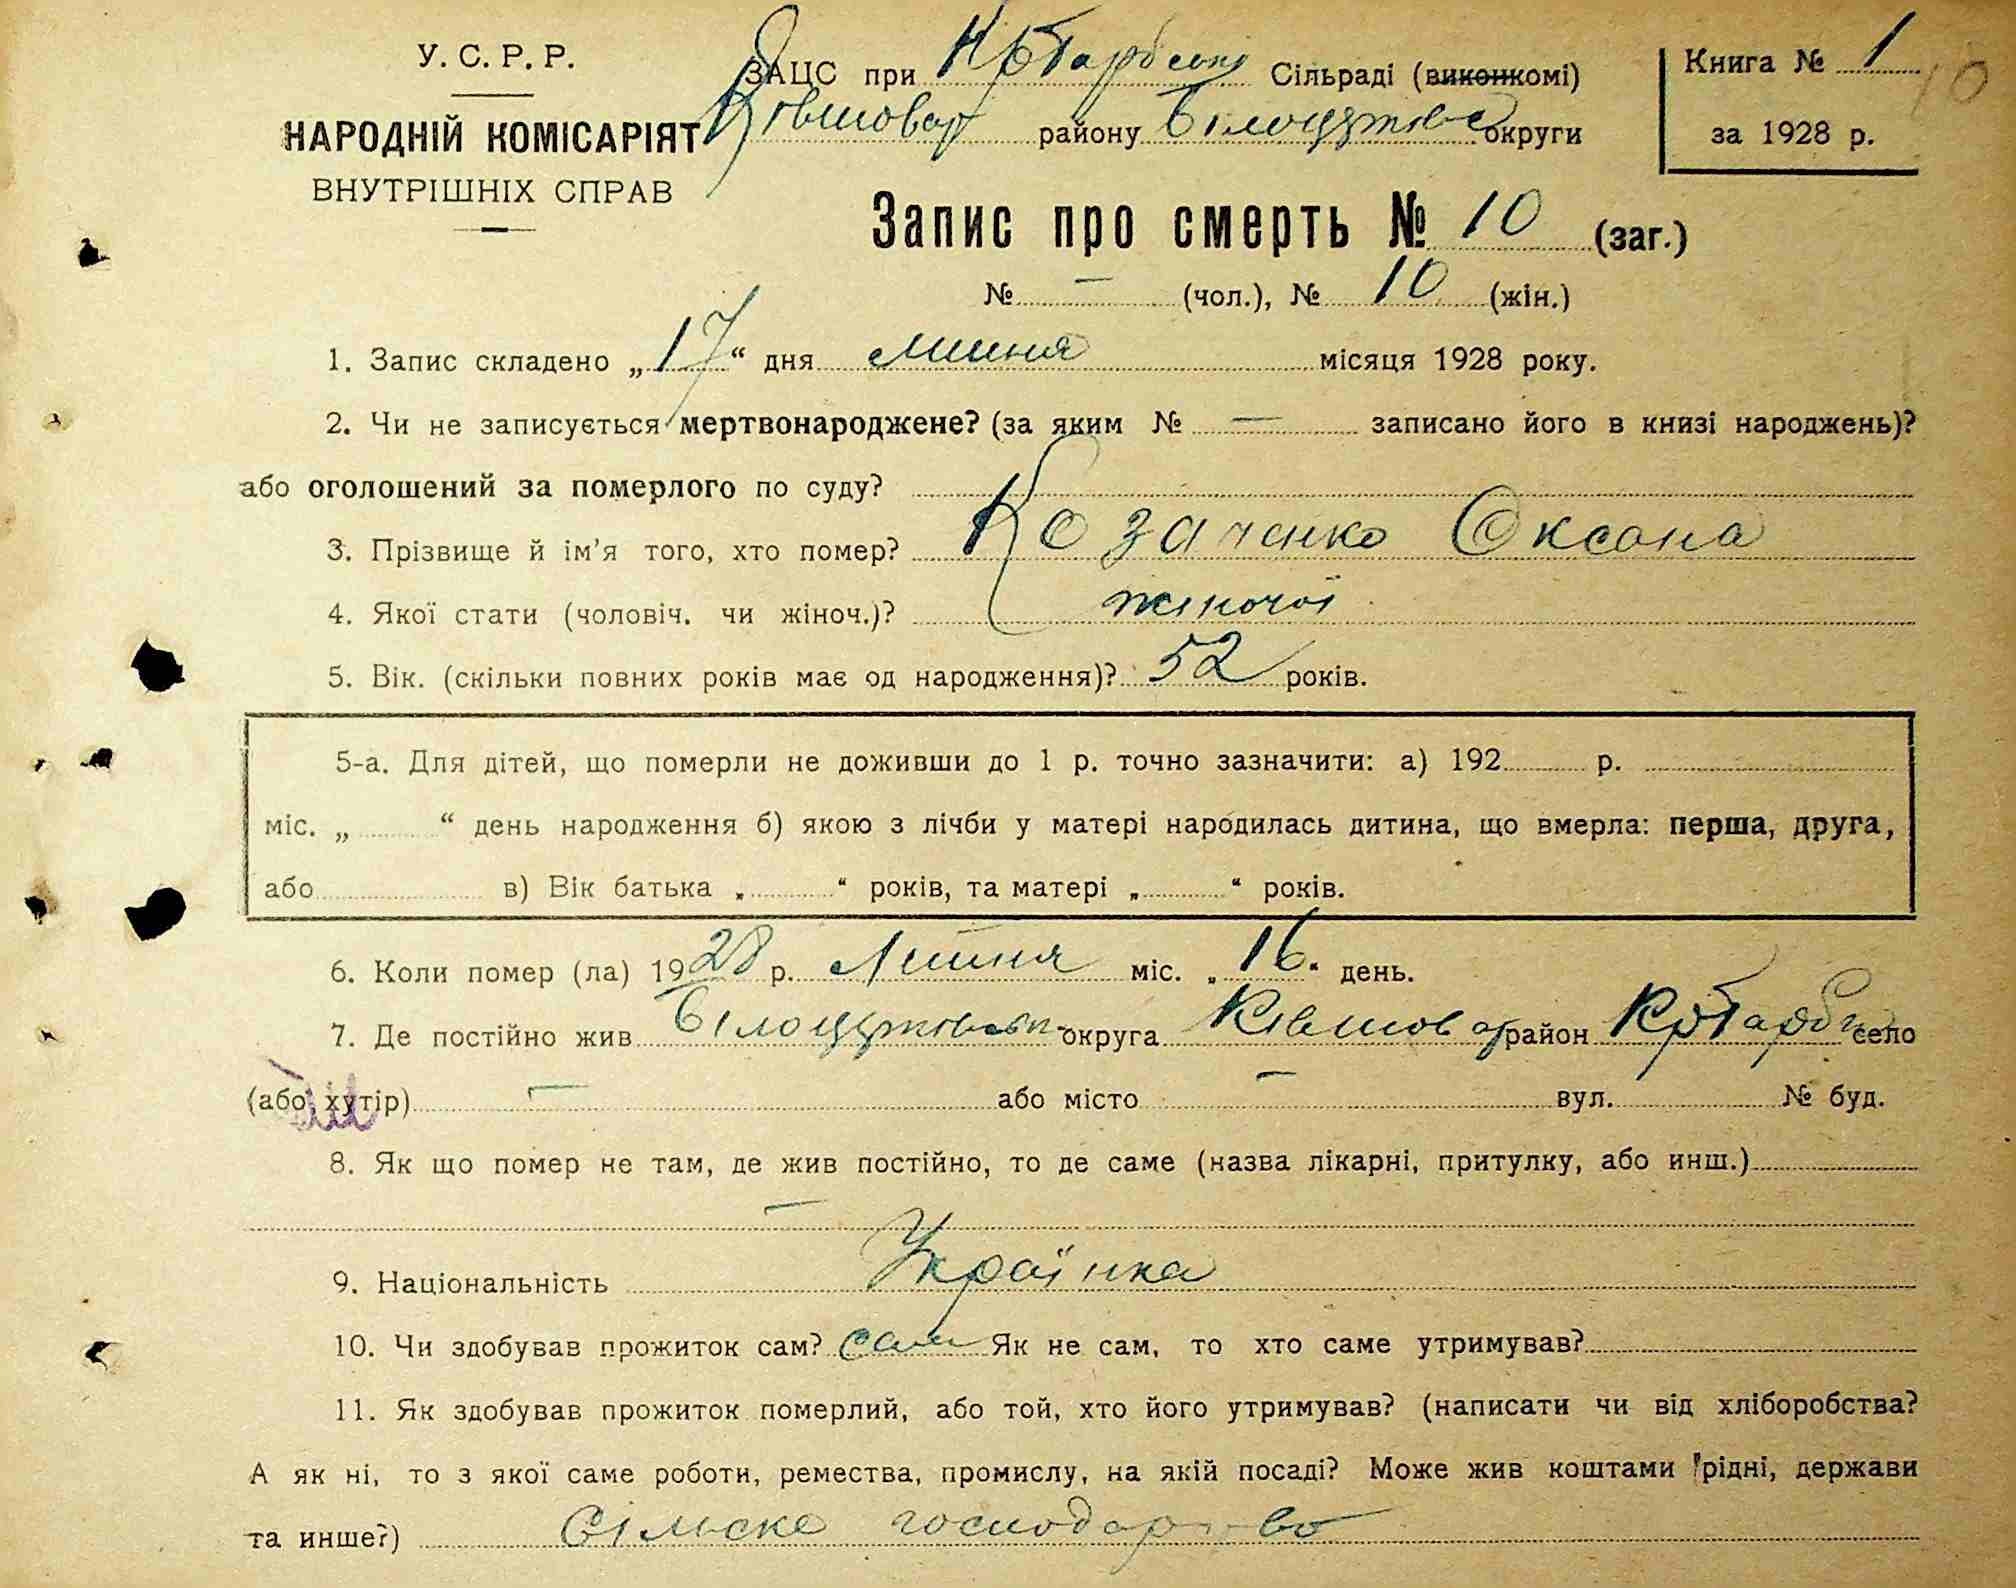 У. С. Р. Р.
НАРОДНІЙ КОМІСАРІЯТ
ВНУТРІШНІХ СПРАВ
ЗАЦС при Сільраді (виконкомі)
Ківшоват району Білоцерківс округи
Книга № 1
за 1928 р.
10
Запис про смерть № 10 (заг.)
№ — (чол.), № 10 (жін.)
1. Запис складено „ 17 “ дня липня місяця 1928 року.
2. Чи не записується мертвонароджене? (за яким № — записано його в книзі народжень)?
або оголошений за померлого по суду?
3. Прізвище й ім’я того, хто помер? Козаченко Оксана
4. Якої стати (чоловіч. чи жіноч.)? жіночої
5. Вік. (скільки повних років має од народження)? 52 років.
5-а. Для дітей, що померли не доживши до 1 р. точно зазначити: а) 192 р.
міс. „ “ день народження б) якою з лічби у матері народилась дитина, що вмерла: перша, друга,
або в) Вік батька „ “ років, та матері „ “ років.
6. Коли помер (ла) 1928 р. Липня міс. „ 16 “ день.
7. Де постійно жив Білоцерківськ округа Ківшоват район село
(або хутір) — або місто — вул. № буд.
8. Як що помер не там, де жив постійно, то де саме (назва лікарні, притулку, або инш.)
—
9. Національність Українка
10. Чи здобував прожиток сам? сам Як не сам, то хто саме утримував?
11. Як здобував прожиток померлий, або той, хто його утримував? (написати чи від хліборобства?
А як ні, то з якої саме роботи, ремества, промислу, на якій посаді? Може жив коштами рідні, держави
та инше?) Сільске господарство